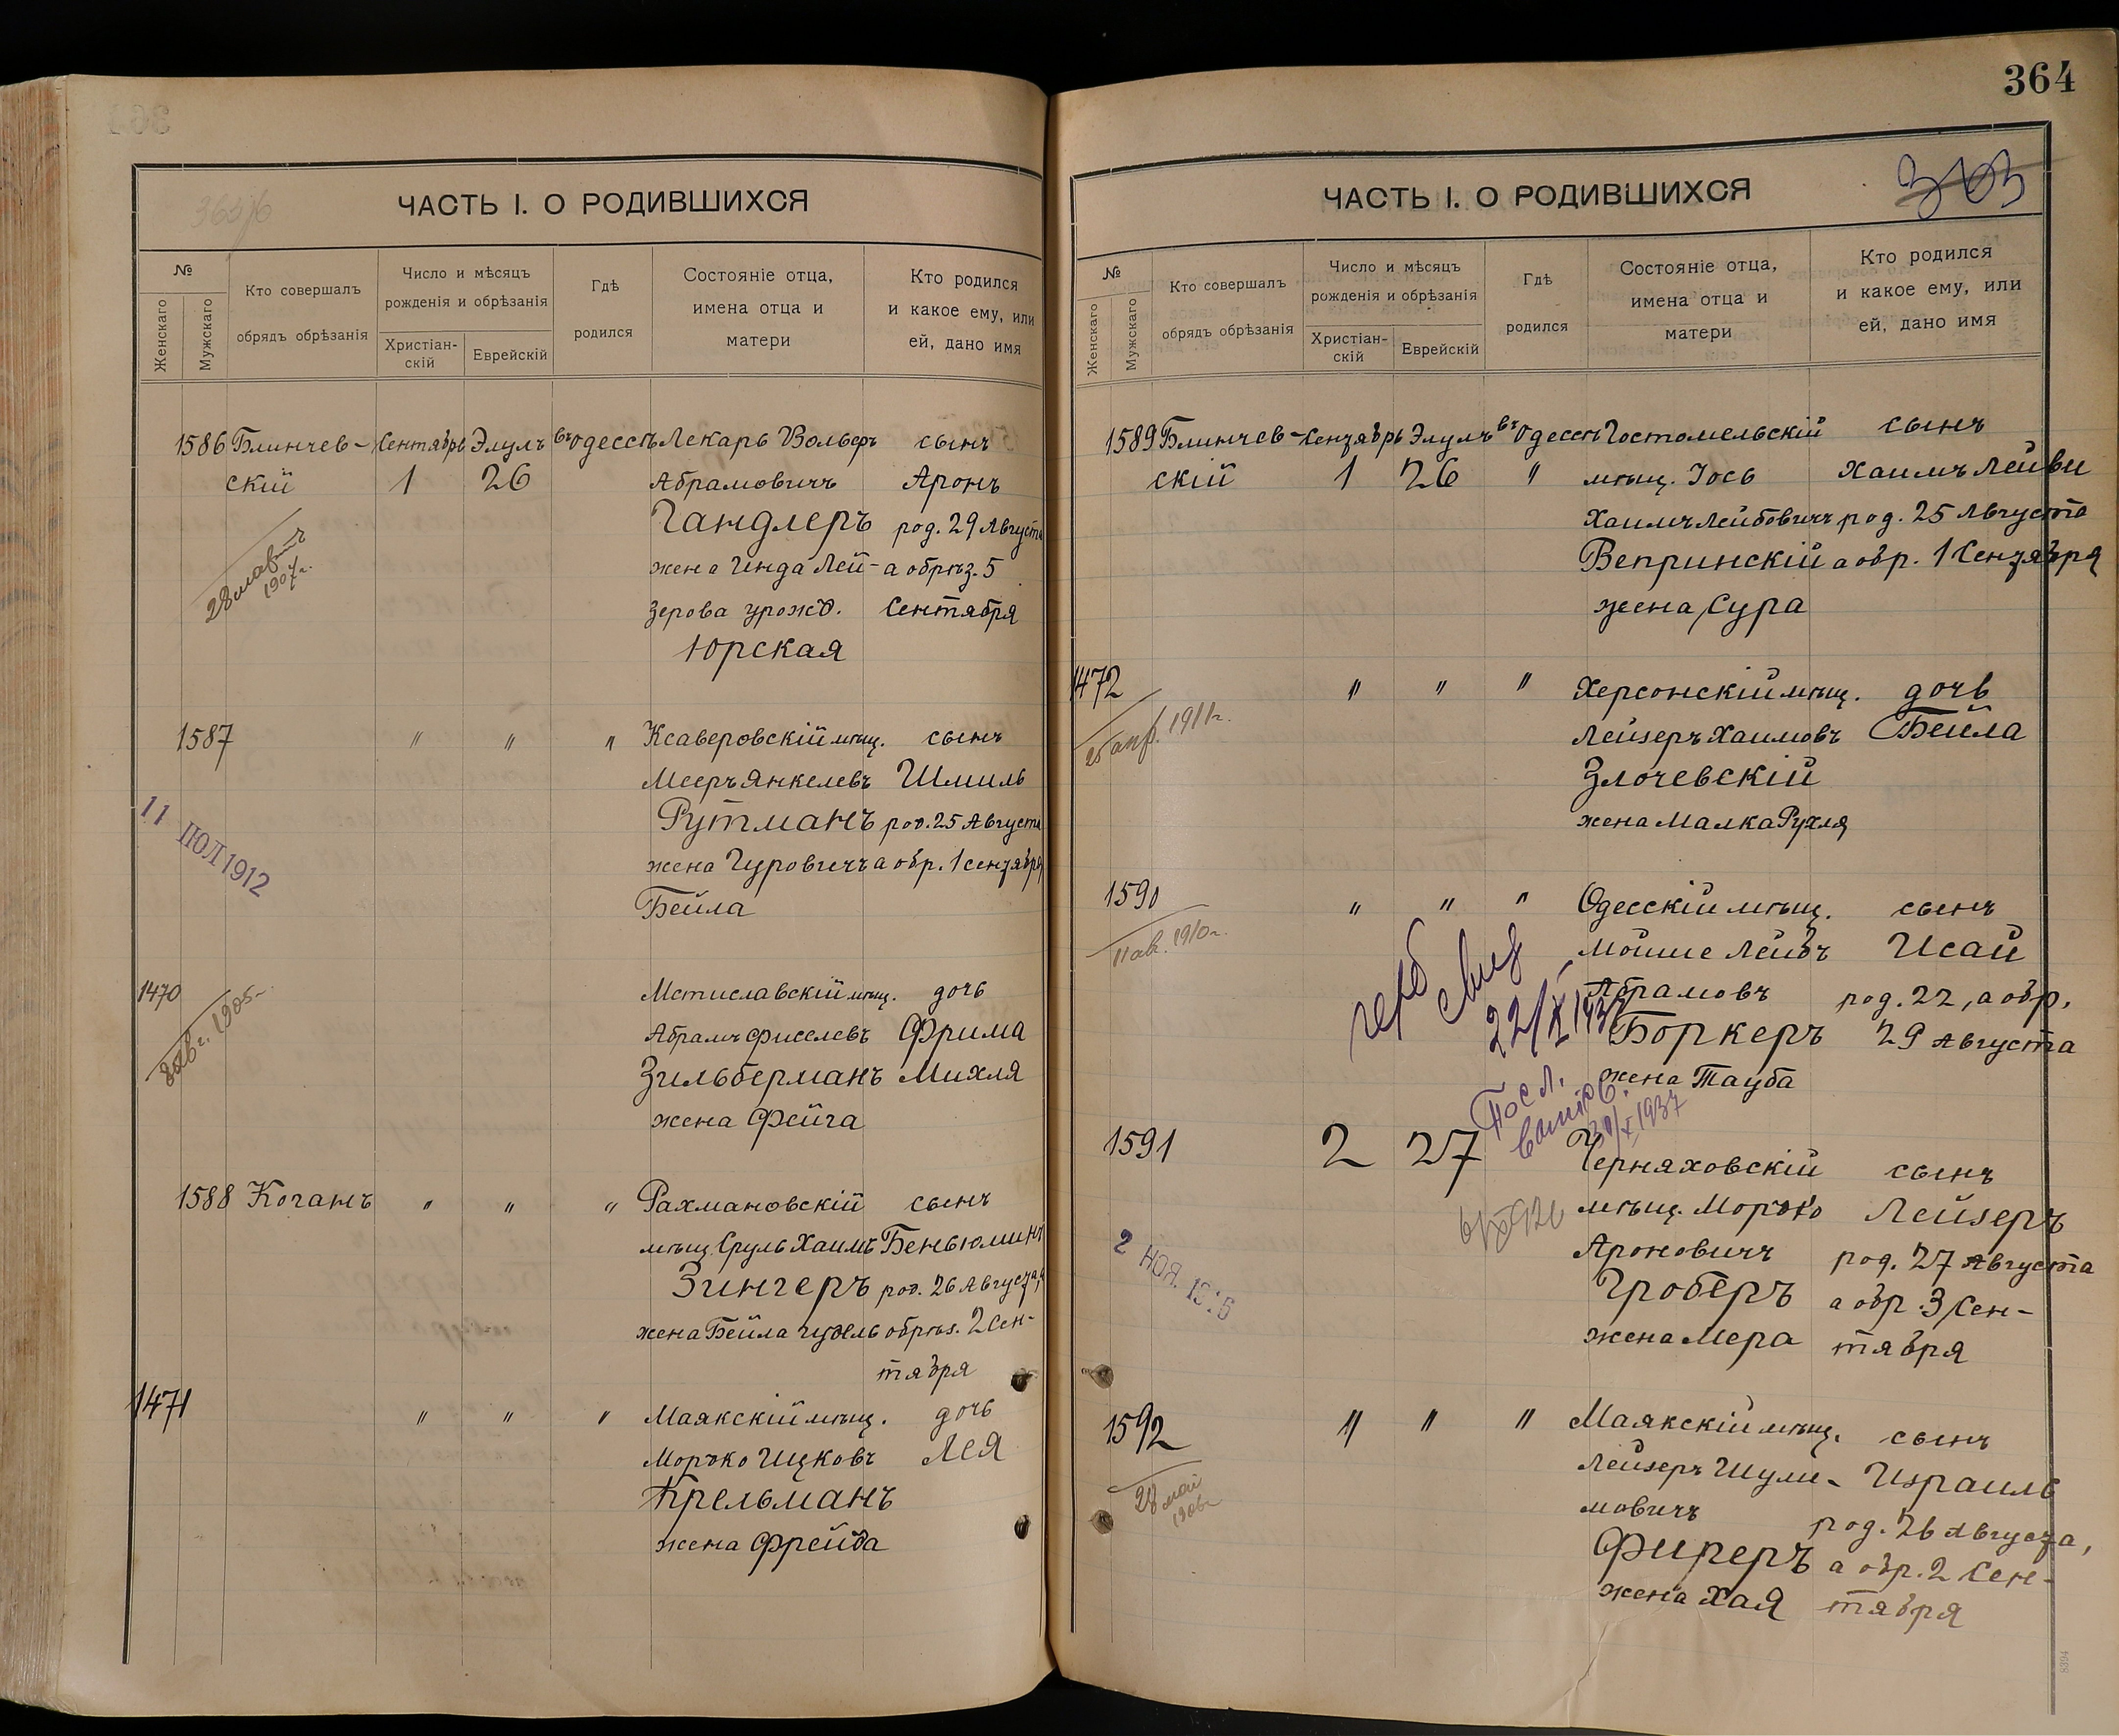 364
ЧАСТЬ I. О РОДИВШИХСЯ
№
Женскаго
Мужскаго
Кто совершалъ
обрядъ обрѣзанія
Число и мѣсяцъ
рожденія и обрѣзанія
Христіан-
скій
Еврейскій
Гдѣ
родился
Состояніе отца,
имена отца и
матери
Кто родился
и какое ему, или
ей, дано имя
1586 Блинчев- Сентябрь Элулъ въ Одессѣ Лекарь Вольфъ сынъ
скій 1 26 Абрамовичъ Аронъ
Гандлеръ род. 29 Августа
жена Гинда Лей- а обрѣз. 5
зерова урожд. Сентября
Юрская
1587 " " " Ксаверовскій мѣщ. сынъ
Мееръ Янкелевъ Шмиль
Рутманъ род. 25 Августа
жена Гуровичъ а обр. 1 сентября
Бейла
11 ІЮЛ 1912
1470 Мстиславскій мѣщ. дочь
Абрамъ Фиселевъ Фрима
Зильберманъ Михля
жена Фейга
1905
1588 Коганъ " " " Рахмановскій сынъ
мѣщ. Сруль Хаимъ Беньюминъ
Зингеръ род. 26 Августа, а
жена Бейла Гудель обрѣз. 2 Сен-
тября
1471 " " " Маякскій мѣщ. дочь
Мордко Ицковъ Лея
Крельманъ
жена Фрейда
ЧАСТЬ I. О РОДИВШИХСЯ
363
№
Женскаго
Мужскаго
Кто совершалъ
обрядъ обрѣзанія
Число и мѣсяцъ
рожденія и обрѣзанія
Христіан-
скій
Еврейскій
Гдѣ
родился
Состояніе отца,
имена отца и
матери
Кто родился
и какое ему, или
ей, дано имя
1589 Блинчев- Сентябрь Элулъ въ Одессѣ Гостомельскій сынъ
скій 1 26 " мѣщ. Іось Хаимъ Лейви
Хаимъ Лейбовичъ род. 25 Августа
Вепринскій а обр. 1 Сентября
жена Сура
1472 " " " Херсонскій мѣщ. дочь
Лейзеръ Хаимовъ Бейла
Злочевскій
жена Малка Рухля
25 апр. 1911 г.
1590 " " " Одесскій мѣщ. сынъ
Мойше Лейбъ Исай
Абрамовъ род. 22, а обр.
Боркеръ 29 Августа
жена Тауба
11 ав. 1910 г.
1591 2 27 Черняховскій сынъ
мѣщ. Мордко Лейзеръ
Ароновичъ род. 27 Августа
Гроберъ а обр. 3 Сен-
жена Мера тября
2 НОЯ.
1592 " " " Маякскій мѣщ. сынъ
Лейзеръ Шули- Израиль
мовичъ род. 26 Августа,
Фиреръ а обр. 2 Сен-
жена Хая тября
28 май
1906 г
8394